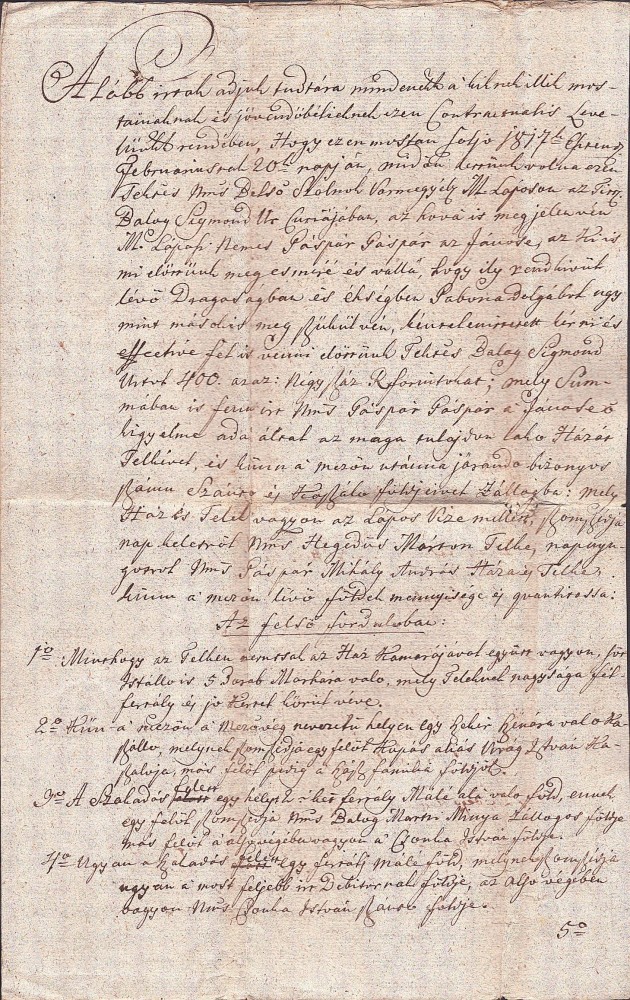 Alább irtak adjuk tudtára mindenekk a' kiknek illik mos-
taniaknak és jövendöbélieknek ezen Contractualis Leve-
lünkk rendiben, Hogy ezen mostan folyo 1817k Eszend.
Februariusnak 20k napján, midön lettünk volna ezen
Tekétes Nms Belső Szolnok Varmegyély M. Laposon az Titz.
Balog Sigmond Ur Curiájában, az hová is megjelenvén
M. Laposi Nemes Gáspár Gáspár az Jánosé, az ki is
mi előttünk meg esmíré és vallá, hogy ily rendkivül
lévö Dragaságban és éhségben Gabona dolgábol ugy
mint más is meg szükülvén, kéntelenittetett kérni és
effective fel is venni elöttünk Tektes Balog Sigmond
Urtol 400. azaz: Négy száz Rforintokat; mely Sum-
mában is fenn irt Nms Gáspár Gáspár a' Jánosé ő
kigyelme ada áltat az maga tulajdon lako Házát
Telkével, és künn a' mezön utánna járando bizonyos
számu Szánto és Kaszálo földjeivel Zállogba: mely
Ház és Telek vagyon az Lápos Vize mellett, szomszédja
nap keletröl Nms Hegedüs Márton Telke, napnyu-
gotrol Nms Gáspár Mihály András Háza és Telke,
künn a' mezön lévö földek mennyisége és quantitossa:
Az felső fordulóban:
1o Minthogy az Telken nemcsak az Ház Kamarájával együtt vagyon,
Istálló is 5 darab Marhára valo, mely Teleknek nagysága fél
fertály és jo Kerttel körül véve.
2o Kün a' mezön a Mezövég nevezetü helyen egy Zekér Szénára valo Ka-
szállo, melynek szomszédja egy felöl Kupás aliás Virág István Ka-
szaloja, más felöl pedig a' familia földje.
3o A Szakadás felett egy helyt 2 = két ferraly Málé alá valo föld, ennek
egy felöl szomszédja Nms Balog Marton Minya Zállogos földje
más felöl a' aljo végiben vagyon a' Csonka István földje.
4o Ugyan a Szakadás felett egy ferraly Málé föld, melynek szomszédja
ugyan a most feljebb irt Debitornak földje, az aljo végében
vagyon Nms Csonka István Szánto földje.
5o